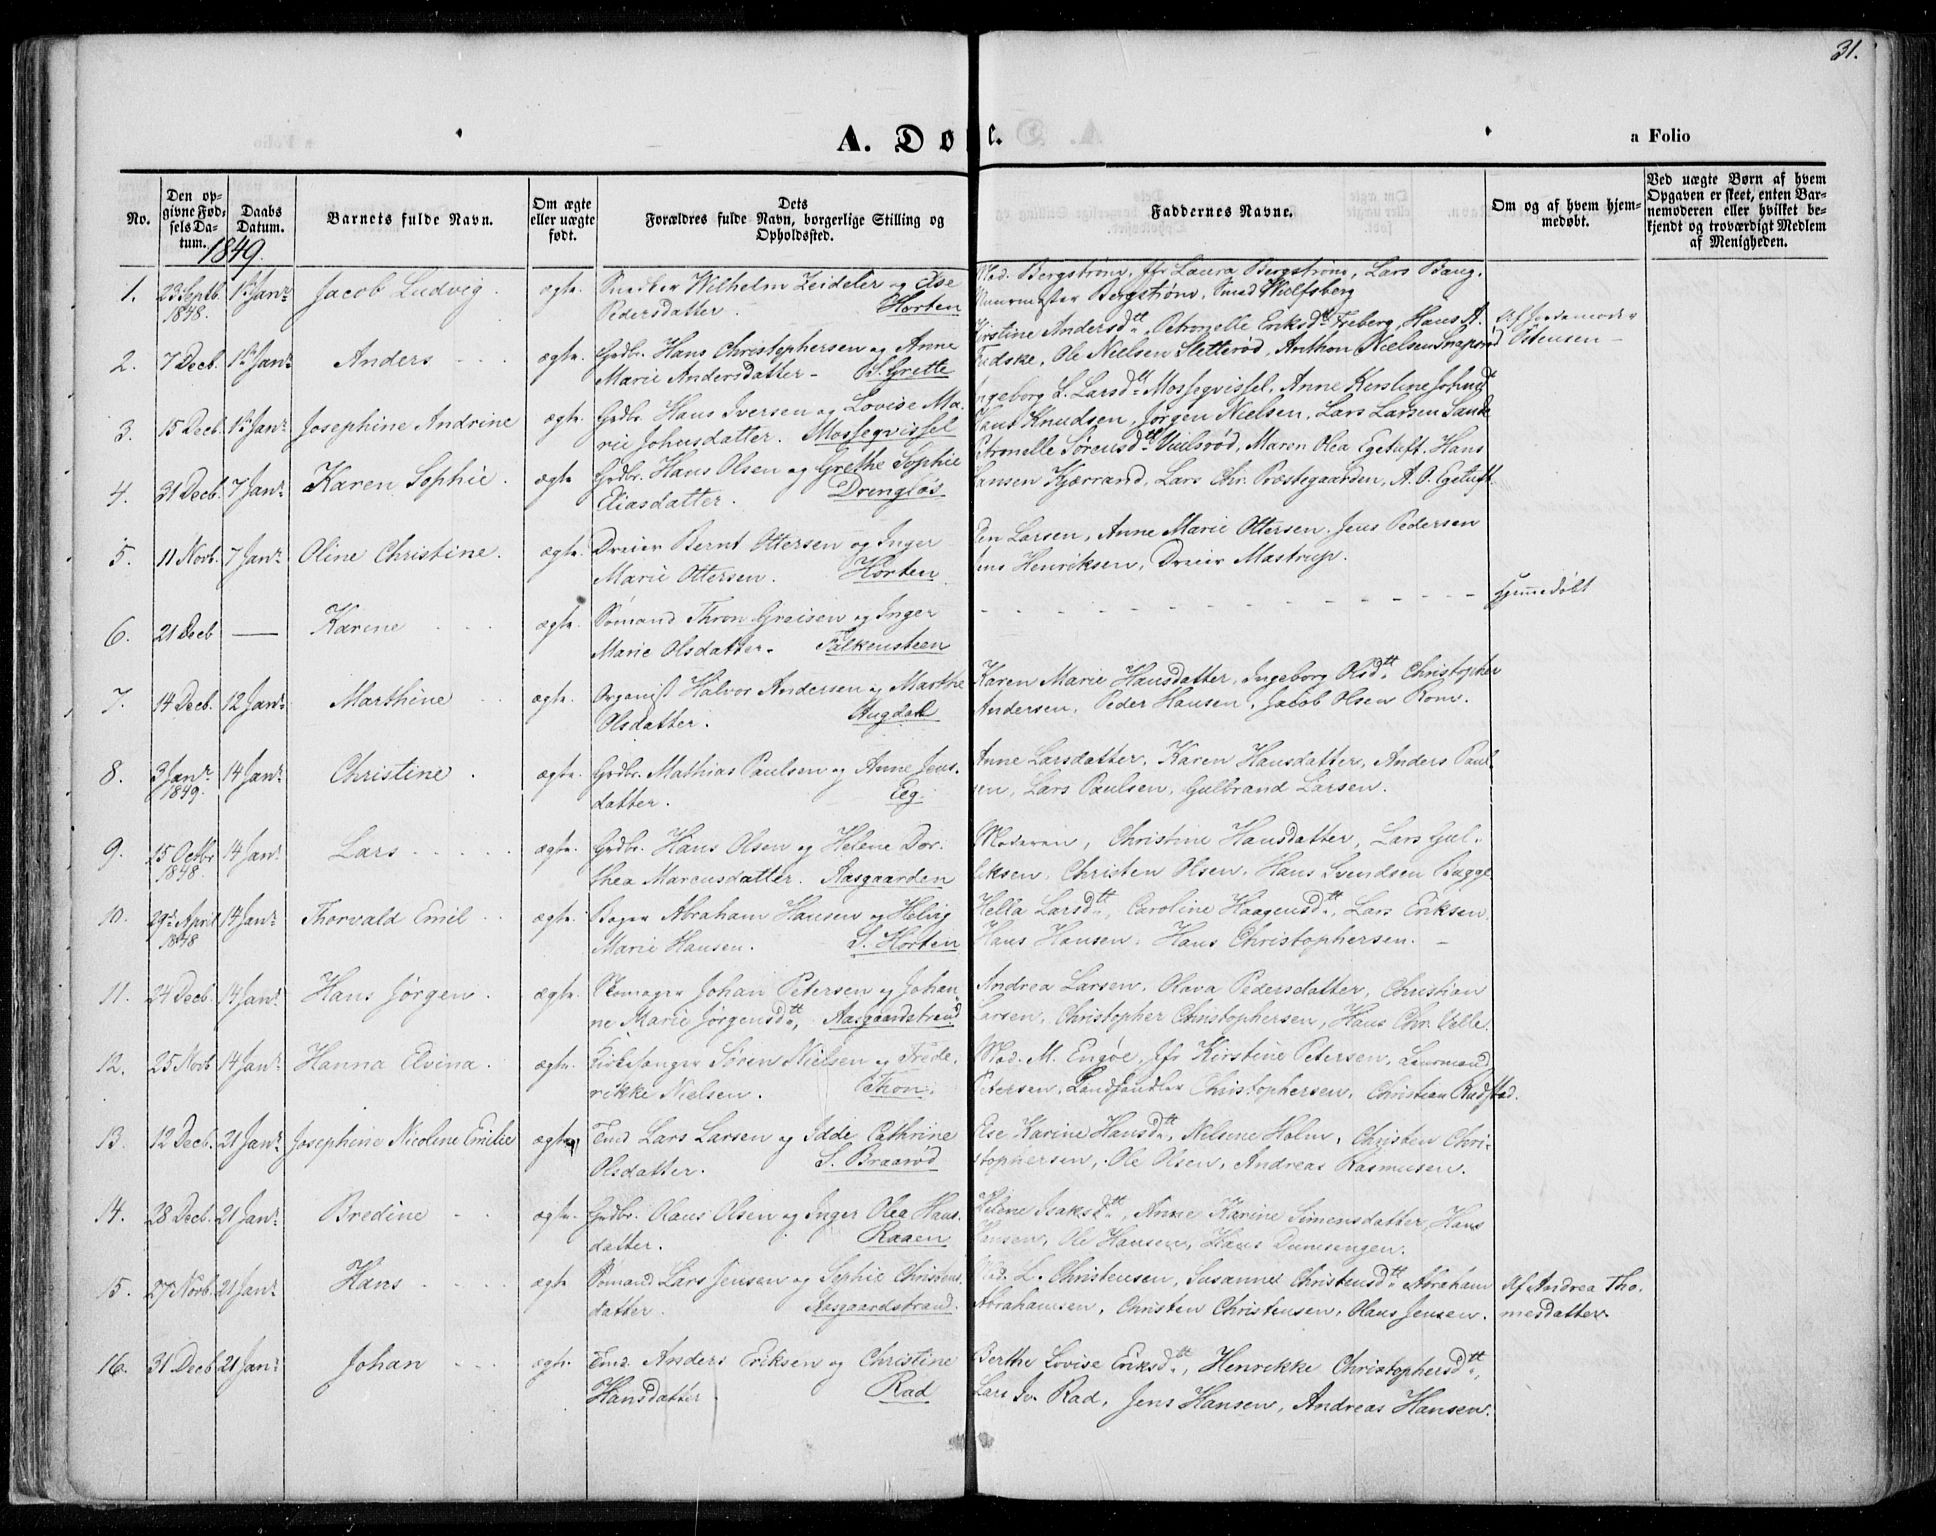 31.
A. Dø e.
a Folio
No.
Den op-
givne Fød-
sels Da-
tum.
Daabs
Datum.
Barnets fulde Navn.
Om ægte
eller uægte
født.
Dets
Forældres fulde Navn, borgerlige Stilling og
Opholdssted.
Faddernes Navne.
Om og af hvem hjem-
medøbt.
Ved uægte Børn af hvem
Opgaven er skeet, enten Bar-
nemoderen eller hvilket be-
kjendt og troværdigt Medlem
af Menigheden.
1849.
1. 23 Septb. 1848. 1 Janr. Jacob Ludvig. ægte. Wilhelm Zeideler og Else
Pedersdatter. Horten
Mad. Bergstrøm, Jfr Laura Bergstrøm, Lars Baug,
Muurmester Bergstrøm, Smed Wulfsberg
2. 7 Decb. 1 Janr. Anders ægte. Grdbr. Hans Christophersen og Anne
Marie Andersdatter. S. Grette
Kirstine Andersdtt., Petronelle Eriksdtt. Freberg, Hans A.
Ole Nielsen Sletterød, Anthon Nielsen
Af Jordemoder
Ottensen
3. 15 Decb. 1 Janr. Josephine Andrine ægte. Grdbr. Hans Iversen og Lovise Ma-
rie Johnsdatter. Mossegvissel
Ingeborg L. Larsdtt. Mossegvissel, Anne Kirstine
Hans Knudsen, Jørgen Nielsen, Lars Larsen Sande
4. 31 Decb. 7 Janr. Karen Sophie. ægte Grdbr. Hans Olsen og Grethe Sophie
Eliasdatter.
Petronelle Sørensdtt. Maren Olea Egetuft, Hans
Hansen Kjærrand, Lars Chr. Præstegaarden, A. O. Egetuft
5. 11 Novb. 7 Janr. Oline Christine. ægte. Dreier Bernt Ottersen og Inger
Marie Ottersen. Horten
Larsen, Anne Marie Ottersen, Jens Pedersen
Jens Henriksen, Dreier Mastrup.
6. 21 Decb — Karine ægte. Sømand Thron Greisen og Inger
Marie Olsdatter. Falkensteen
Hjemmedøbt
7. 14 Decb. 12 Janr. Marthine ægte. Organist Halvor Andersen og Marthe
Olsdatter. Augdal
Karen Marie Hansdatter, Ingeborg Olsdtt. Christopher
Andersen, Peder Hansen, Jacob Olsen Rom.
8. 3 Janr. 1849. 14 Janr. Christine. ægte. Grdbr. Mathias Paulsen og Anne Jens-
datter. Eeg.
Anne Larsdatter, Karen Hansdatter, Anders Paul-
sen, Lars Paulsen, Gulbrand Larsen.
9. 15 Octbr 1848. 14 Janr. Lars ægte. Grdbr. Hans Olsen og Helene Dor-
thea Marcusdatter. Aasgaarden
Moderen, Christine Hansdatter, Lars Gul-
liksen, Christen Olsen, Hans Svendsen Bugge
10. 29de April 1848 14 Janr. Thorvald Emil ægte. Bager Abraham Hansen og Helvig
Marie Hansen. S. Horten
Hella Larsdtt., Caroline Haagensdtt., Lars Eriksen,
Hans Hansen, Hans Christophersen.
11. 24 Decb. 14 Janr. Hans Jørgen. ægte. Skomager Johan Petersen og Johan-
ne Marie Jørgensdtt., Aasgaardstrand
Andrea Larsen, Olava Pedersdatter, Christian
Larsen, Christopher Christophersen, Hans Chr. Velle.
12. 25 Novb 14 Janr. Hanna Elvina. ægte. Kirkesanger Søren Nielsen og Frede-
rikke Nielsen.
Mad. M. Engøe, Jfr Kirstine Petersen, Lensmand
Petersen, Landhandler Christophersen, Christian Rudstad.
13. 12 Decb. 21 Janr. Josephine Nicoline Emilie ægte Lars Larsen og Idde Cathrine
Olsdatter. S. Braarød
Else Karine Hansdtt., Nilsine Holm, Christen Chri-
stophersen, Ole Olsen, Andreas Rasmusen.
14. 28 Decb. 21 Janr. Bredine ægte. Grdbr. Olaus Olsen og Inger Olea Hans-
datter. Raaen
Helene Isaksdtt., Anne Karine Simensdatter, Hans
Hansen, Ole Hansen, Hans Dumsengen.
15. 27 Novb. 21 Janr. Hans ægte Sømand Lars Jensen og Sophie Christens-
datter. Aasgaardstrand.
Mad. L. Christensen, Susanne Christensdtt. Abraham
Abrahamsen, Christen Christensen, Olaus Jensen.
Af Andrea Tho-
mesdatter.
16. 31 Decb 21 Janr. Johan ægte. Anders Eriksen og Christine
Hansdatter. Rad
Berthe Lovise Eriksdtt., Henrikke Christophersdtt.,
Lars Iv. Rad, Jens Hansen, Andreas Hansen.